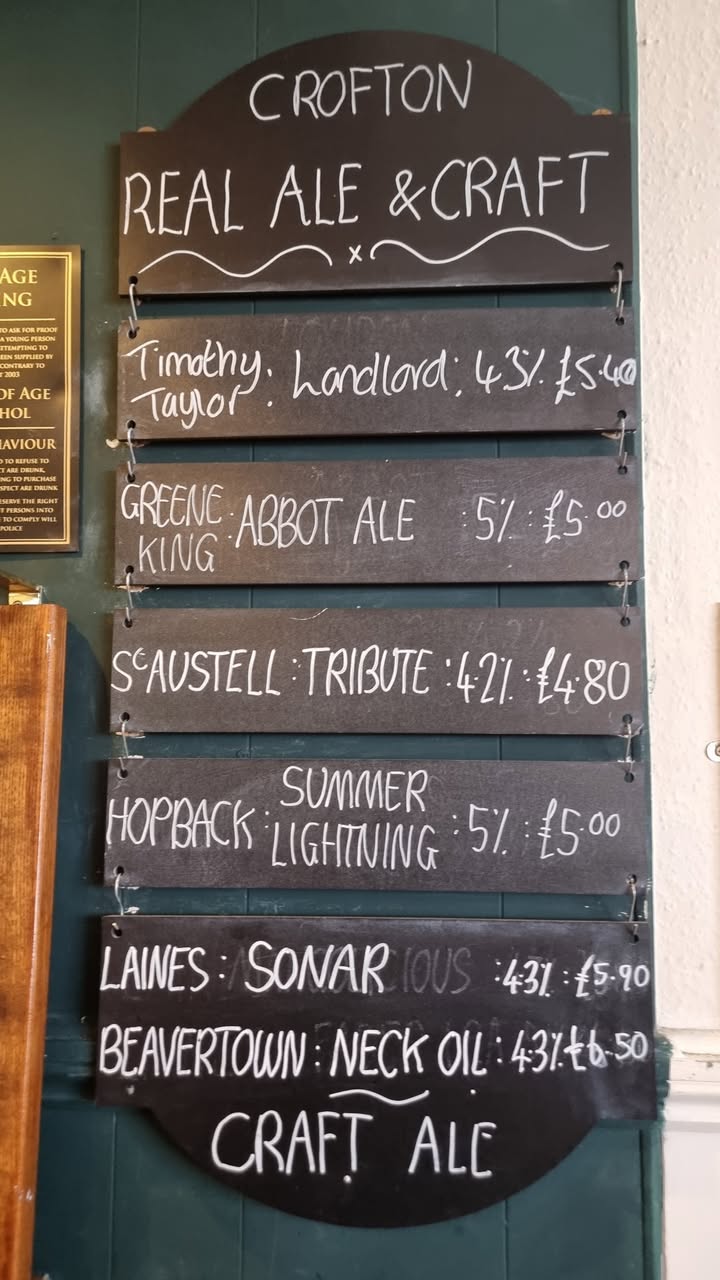 CROFTON
REAL ALE & CRAFT
x
Timothy Taylor: Landlord: 4.3% £5.40
GREENE KING: ABBOT ALE : 5% : £5.00
ST AUSTELL : TRIBUTE : 4.2% : £4.80
HOPBACK : SUMMER LIGHTNING : 5% : £5.00
LAINES : SONAR : 4.3% : £5.90
BEAVERTOWN : NECK OIL : 4.3% £6.50
CRAFT ALE
AGE
NG
TO ASK FOR PROOF
A YOUNG PERSON
ATTEMPTING TO
EEN SUPPLIED BY
CONTRARY TO
2003
OF AGE
HOL
HAVIOUR
D TO REFUSE TO
CT ARE DRUNK,
NG TO PURCHASE
SPECT ARE DRUNK
ESERVE THE RIGHT
T PERSONS INTO
E TO COMPLY WILL
POLICE